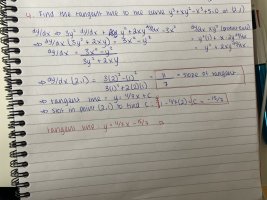 4. Find the tangent line to the curve y³+xy²-x³+5=0 at (2,1)
dy/dx ⇒ 3y² dy/dx + y² + 2xy dy/dx - 3x²
dy/dx xy² (product rule)
⇒ dy/dx (3y² + 2xy) = 3x² - y²
= y²(1) + x·2y dy/dx
dy/dx = 3x² - y² / 3y² + 2xy
= y² + 2xy dy/dx
⇒ dy/dx (2,1) = 3(2)² - (1)² / 3(1)² + 2(2)(1) = 11 / 7 = slope of tangent
⇒ tangent line = y = 11/7x + C
⇒ sub in point (2,1) to find C = 1 - 11/7(2) = C = -15/7
tangent line y = 11/7x - 15/7